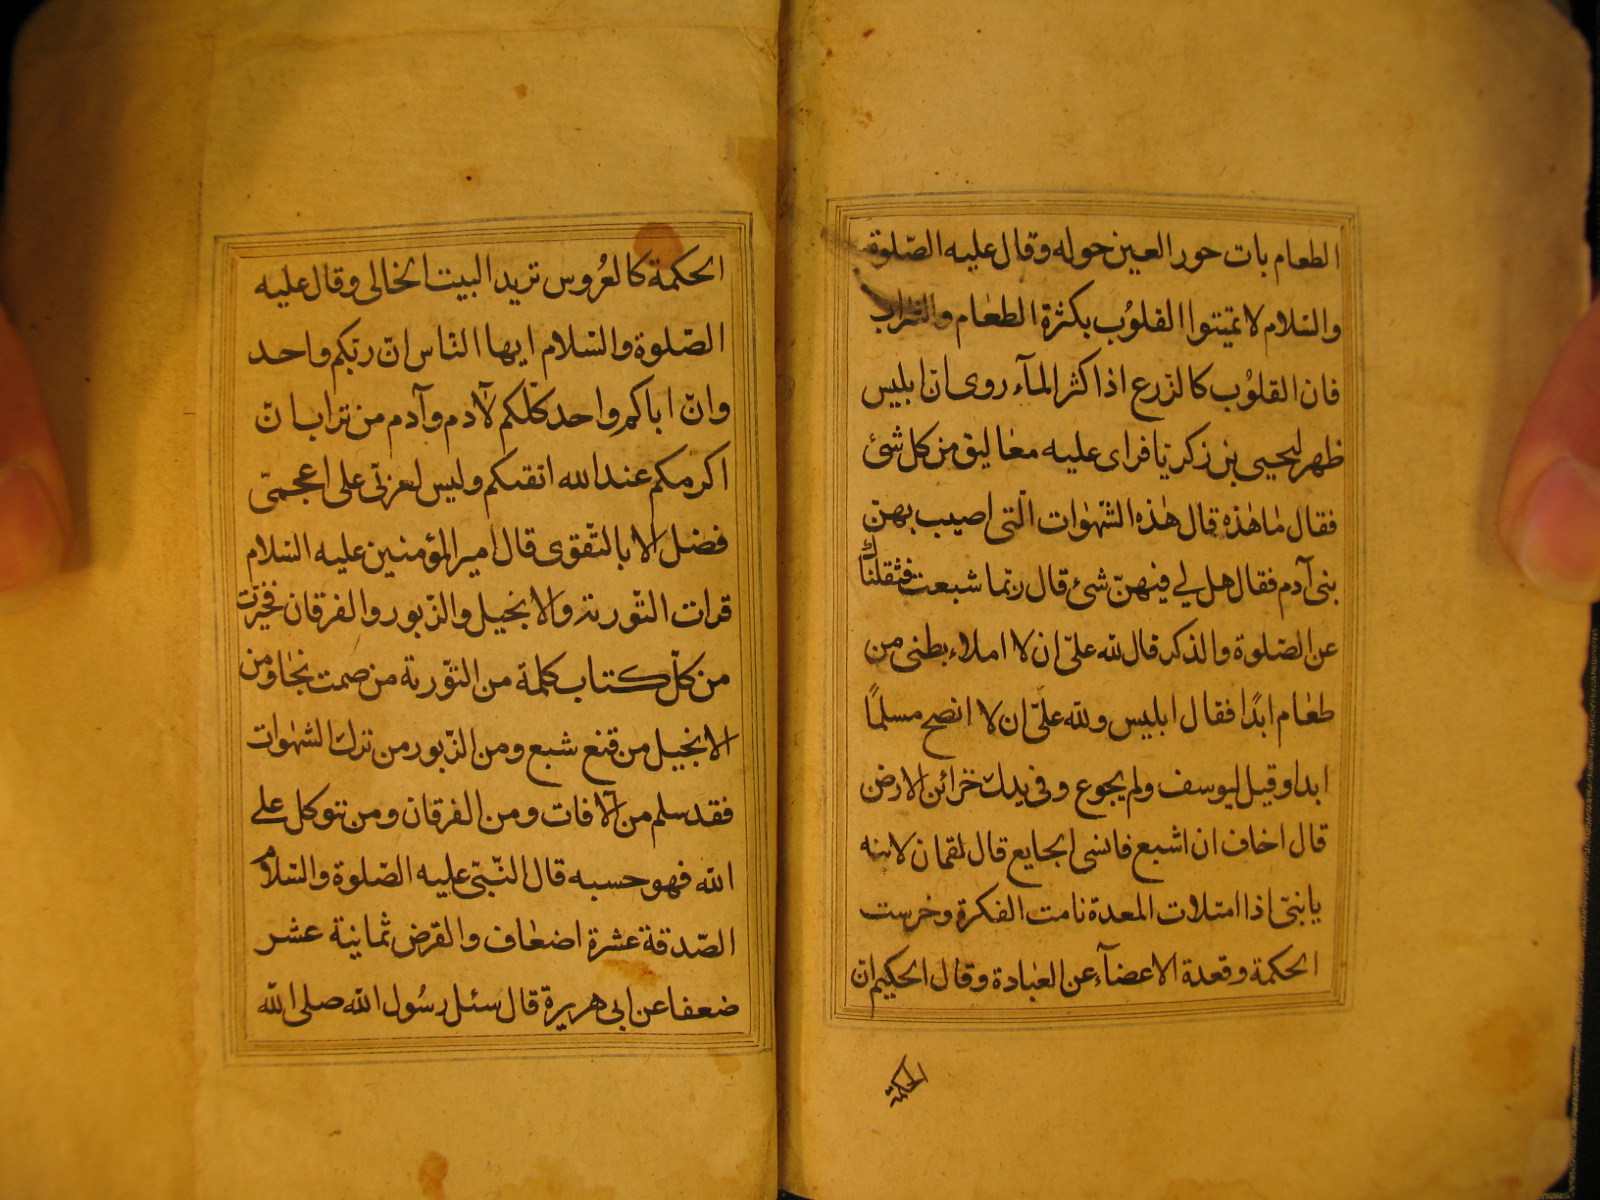 الطعام بات حور العين حوله وقال عليه الصّلوة
والسّلام لا تميتوا القلوُب بكثرة الطعام والشراب
فان القلوُب كالزّرع اذا كثر المآء روى انّ ابليس
ظهر ليحيى بن زكريّا فراى عليه معاليق من كل شئ
فقال ماهٰذه قال هٰذه الشّهوات الّتى اصيب بهنّ
بنى آدم فقال هل لي فيهنّ شئ قال ربّما شبعت فثقلناك
عن الصّلوة والذكر قال لله علىّ ان لا املاء بطنى من
طعام ابدًا فقال ابليس ولله علىّ ان لا انصح مسلمًا
ابدا وقيل ليوسف ولم يجوع وفى يدك خزائن الارض
قال اخاف ان اشبع فانسى الجايع قال لقمان لابنه
يا بنىّ اذا امتلات المعدة نامت الفكرة وخرست
الحكمة وقعدة الاعضآء عن العبادة وقال الحكيم انّ
الحكمة
الحكمة كالعُروس تريد البيت الخالى وقال عليه
الصّلوة والسّلام ايها النّاس انّ ربّكم واحد
وانّ اباكم واحد كلّكم لآدم وآدم من تراب انّ
اكرمكم عند الله اتقىكم وليس لعربّى على اعجمىّ
فضل الا بالتّقوى قال امير المؤمنين عليه السّلام
قرات التّورية والانجيل والزّبور والفرقان فخيّرت
من كلّ كتاب كلمة من التّورية من صمت نجا ومن
الانجيل من قنع شبع ومن الزّبور من ترك الشهوات
فقد سلم من الآفات ومن الفرقان ومن يتوكل على
الله فهو حسبه قال النّبىّ عليه الصّلوة والسّلام
الصّدقة عشرة اضعاف والقرض ثمانية عشر
ضعفا عن ابى هريرة قال سئل رسُول الله صلى الله